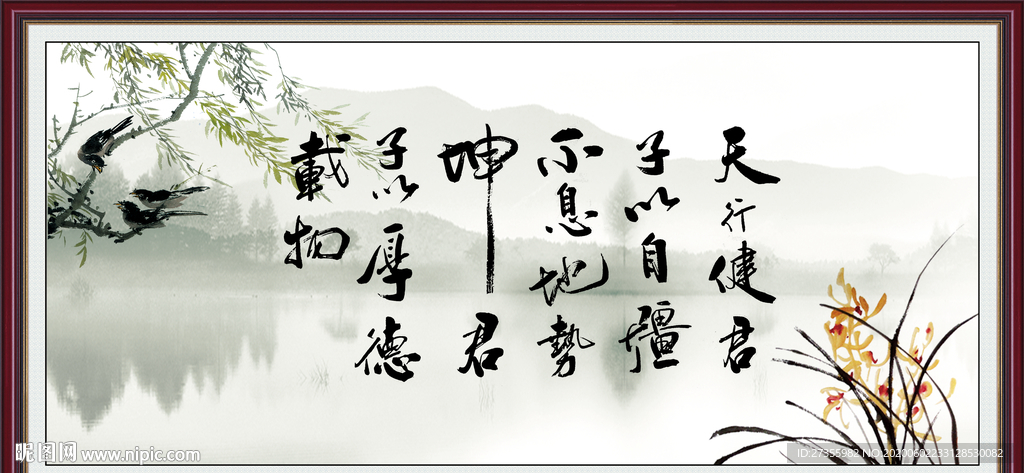 天行健君
子以自疆
不息地勢
坤君
子以厚德
載物
昵图网 www.nipic.com
ID:27355982 NO:20200602233128530082